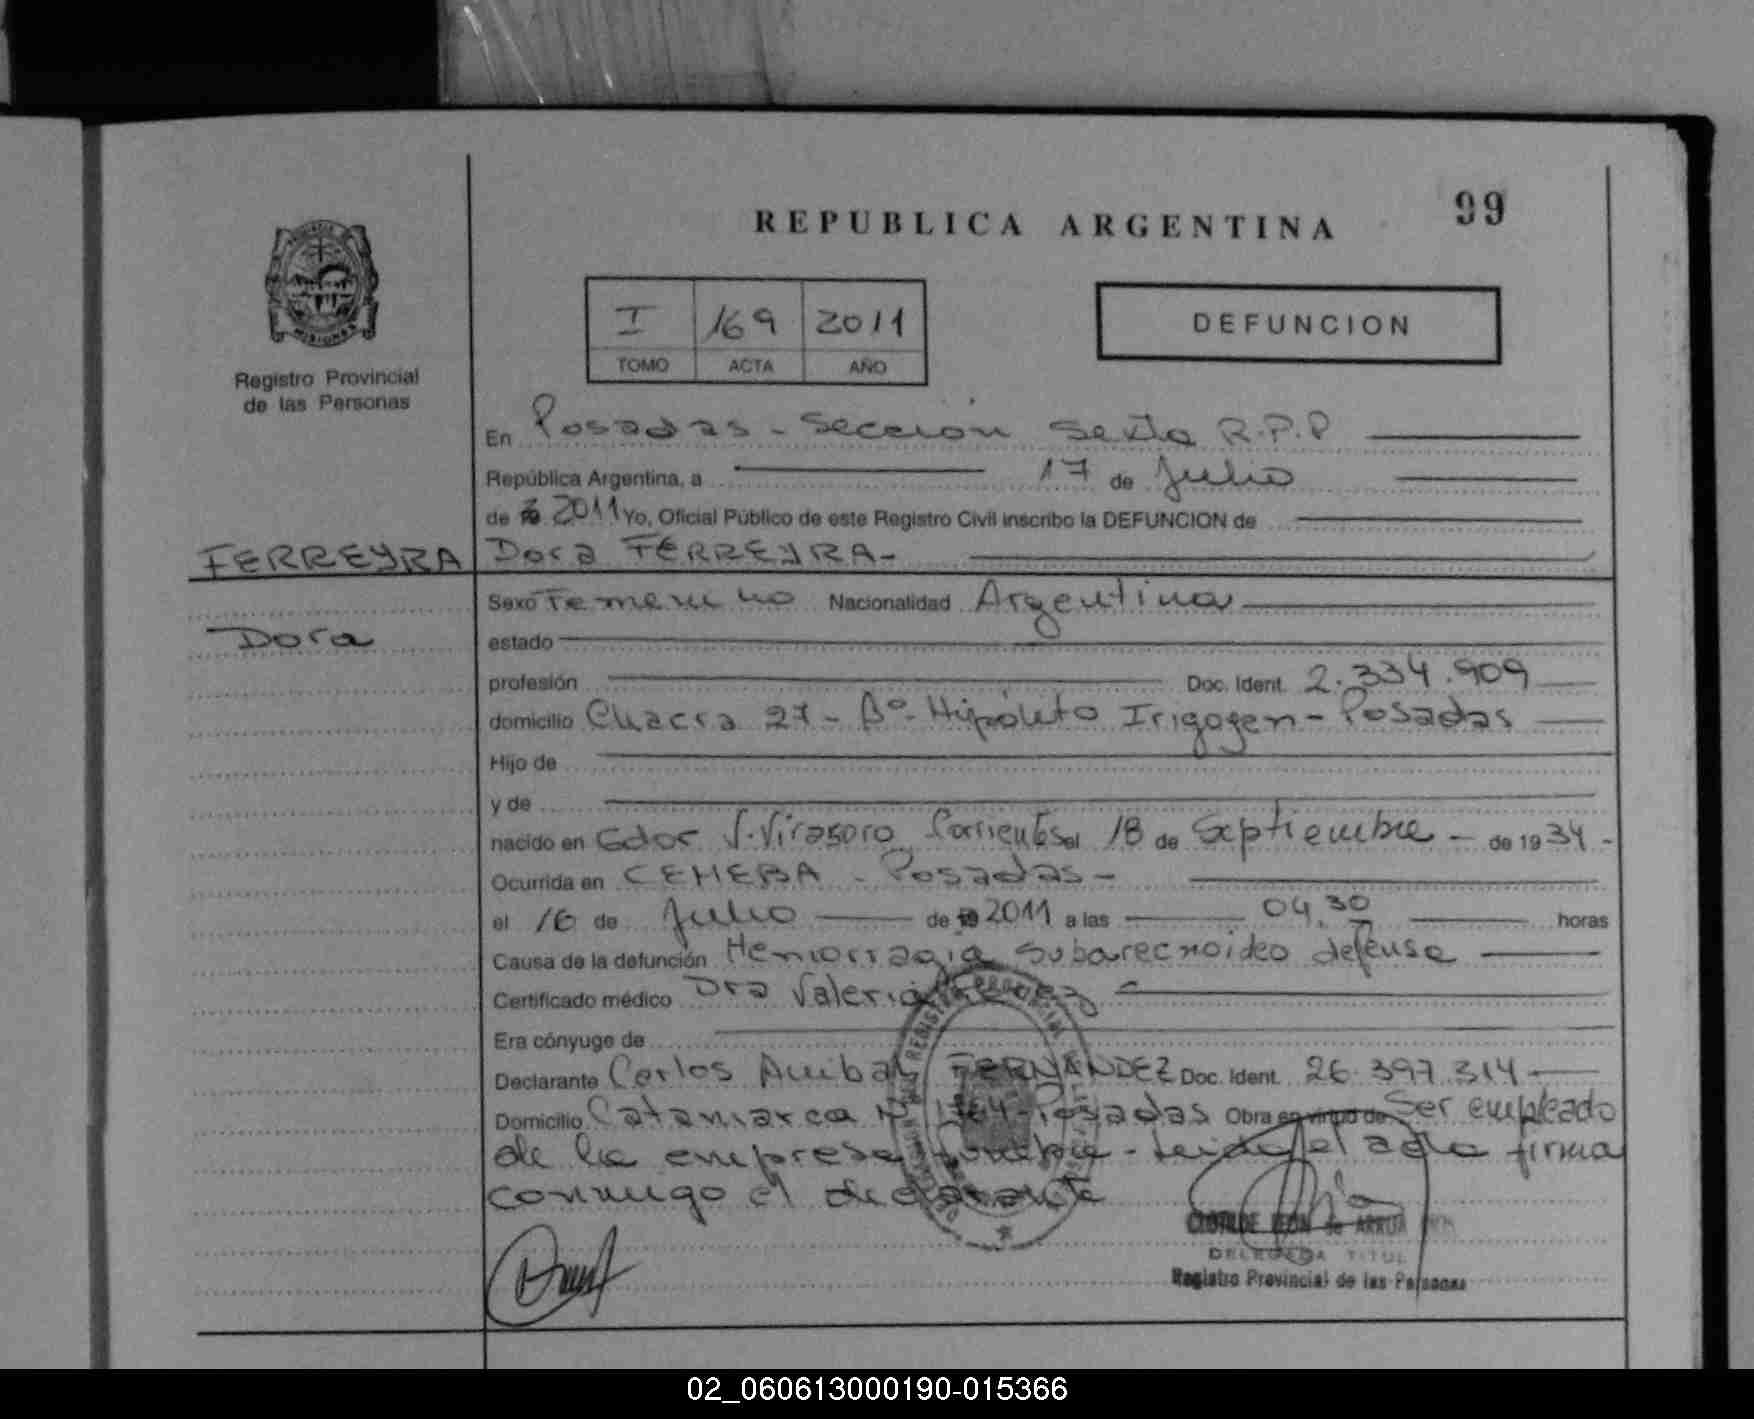 99
REPUBLICA ARGENTINA
I 169 2011
TOMO ACTA AÑO
DEFUNCION
MISIONES
Registro Provincial
de las Personas
En Posadas - Sección Sexta R.P.P
República Argentina, a 17 de Julio
de 2011 Yo, Oficial Público de este Registro Civil inscribo la DEFUNCION de
FERREYRA Dora FERREYRA-
Sexo Femenino Nacionalidad Argentina
Dora
estado
profesión Doc. Ident. 2.334.909
domicilio Chacra 27 - Bº. Hipólito Irigoyen - Posadas
Hijo de
y de
nacido en Gdor V. Virasoro Corrientes el 18 de Septiembre - de 1934 -
Ocurrida en CEMEBA - Posadas -
el 16 de Julio de 2011 a las 04.30 horas
Causa de la defunción Hemorragia Subarecnoideo defusa
Certificado médico Dra Valeria
Era cónyuge de
Declarante Carlos Anibal FERNANDEZ Doc. Ident. 26.397.314
Domicilio Catamarca Nº 1764 - Posadas Obra en virtud de Ser empleado
de la empresa funebre - Leida el acta firma
conmigo el declarante
CLOTILDE LEON de ARRUA
DELEGADA TITUL
Registro Provincial de las Personas
02_060613000190-015366